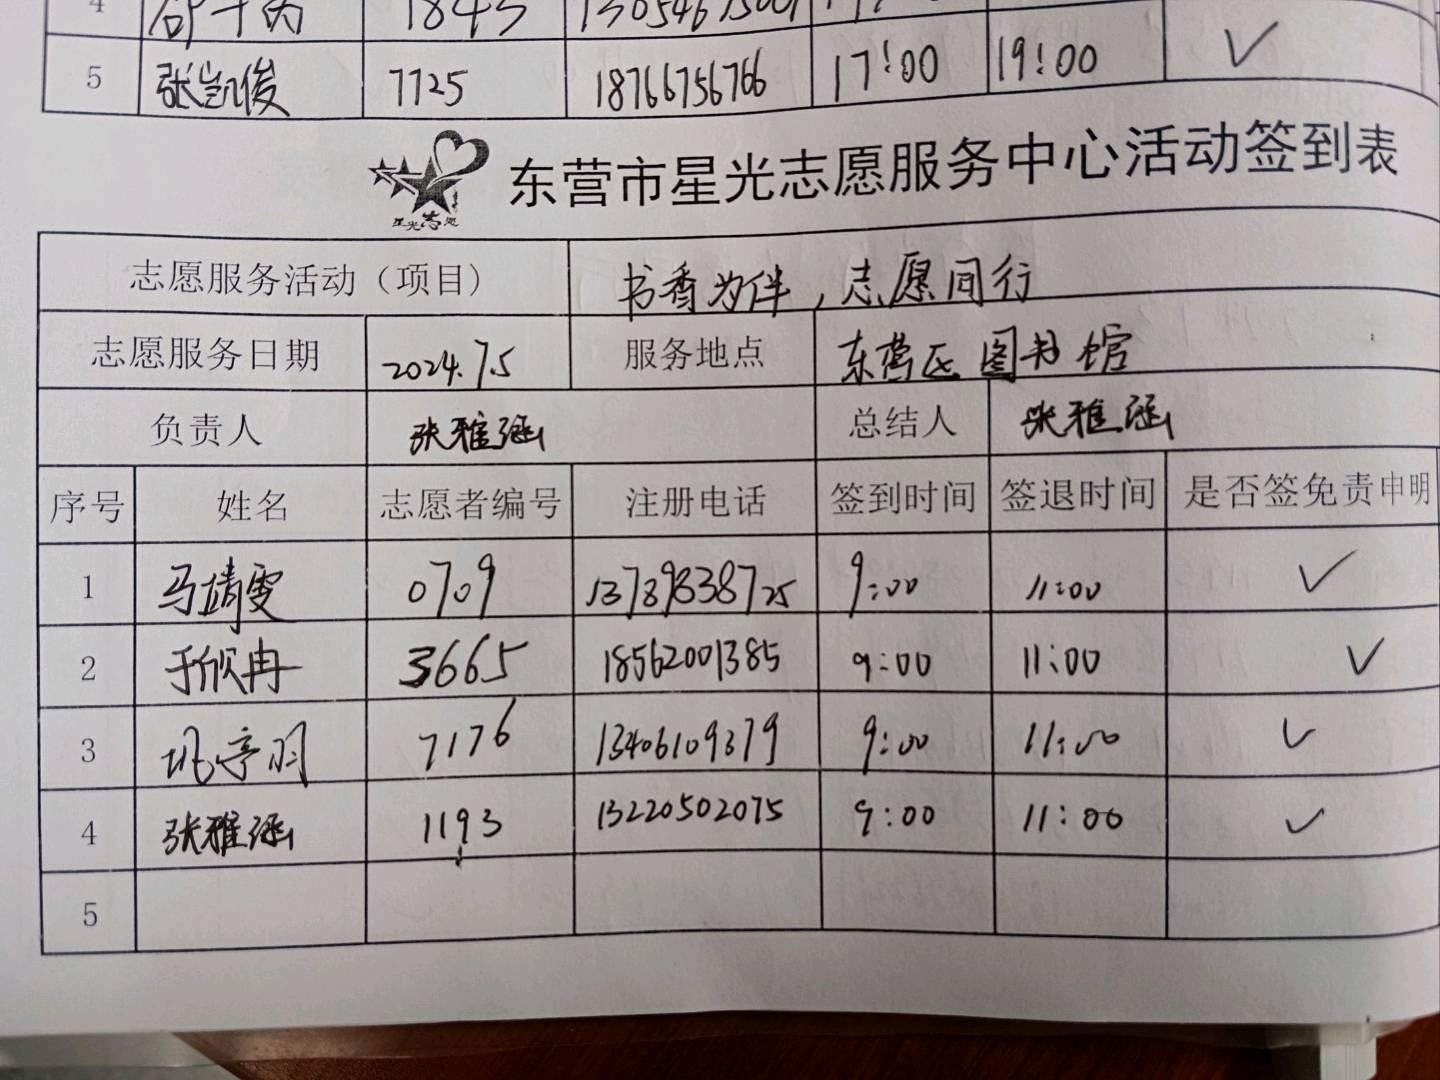 4 1843
5 张凯俊 7725 18766756766 17:00 19:00 ✓
星光志愿
东营市星光志愿服务中心活动签到表
志愿服务活动（项目） 书香为伴，志愿同行
志愿服务日期 2024.7.5 服务地点 东营区图书馆
负责人 张雅涵 总结人 张雅涵
序号 姓名 志愿者编号 注册电话 签到时间 签退时间 是否签免责申明
1 马靖雯 0709 13789838725 9:00 11:00 ✓
2 于欣冉 3665 18562001385 9:00 11:00 ✓
3 7176 13406109379 9:00 11:00 ✓
4 张雅涵 1193 13220502075 9:00 11:00 ✓
5